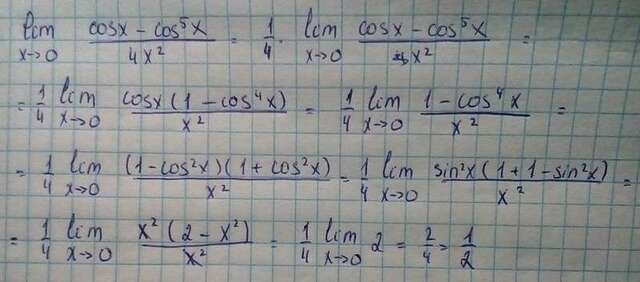 lim x→0 (cosx − cos⁵x)/(4x²) = 1/4 · lim x→0 (cosx − cos⁵x)/(x²) =
= 1/4 lim x→0 (cosx(1 − cos⁴x))/(x²) = 1/4 lim x→0 (1 − cos⁴x)/(x²) =
= 1/4 lim x→0 ((1−cos²x)(1 + cos²x))/(x²) = 1/4 lim x→0 (sin²x(1+1−sin²x))/(x²) =
= 1/4 lim x→0 (x²(2 − x²))/(x²) = 1/4 lim x→0 2 = 2/4 = 1/2